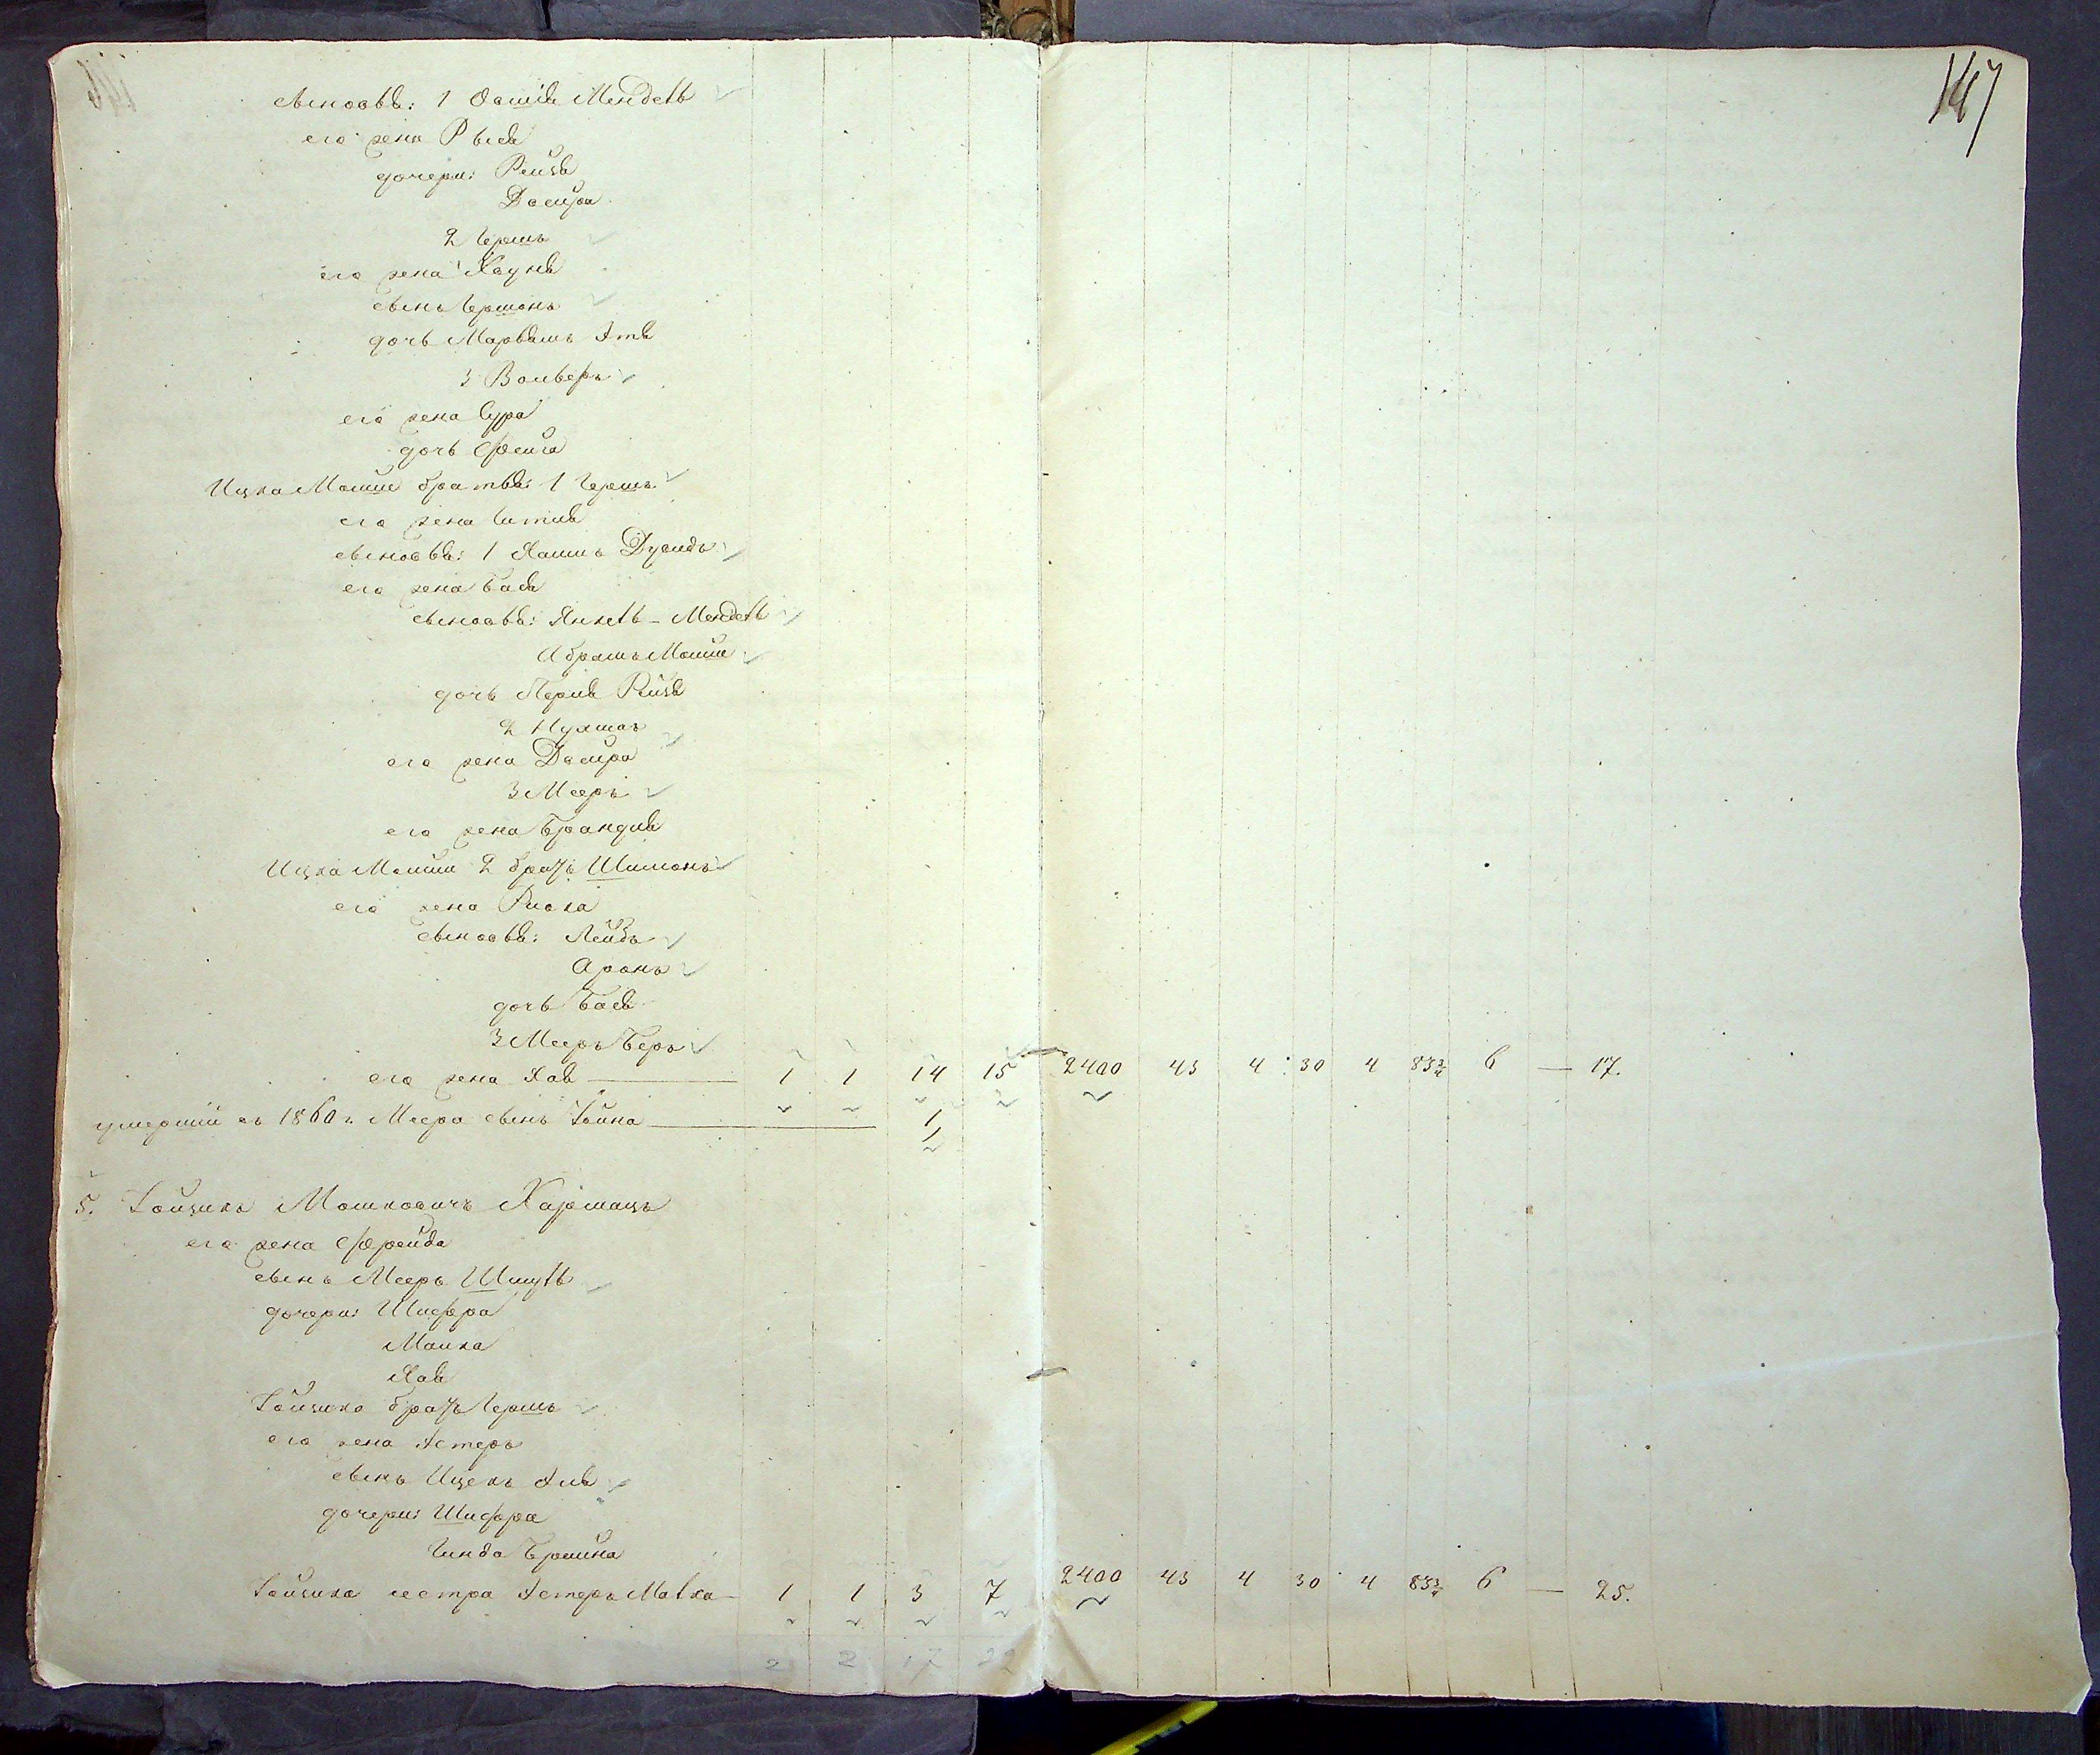 147
сыновья: 1 Мендель
его жена Рыся
дочери: Рейзя
Двейра
2 Гершъ
его жена Хауня
сынъ Гершонъ
дочь Марьямъ Этя
3 Вольферъ
его жена Сура
дочь Фейга
Ицка Мошке братья: 1 Гершъ
его жена Гитля
сыновья: 1 Хаимъ Дувидъ
его жена Бася
сыновья: Янкель - Мендель
Абрамъ Мошке
дочь Перля Рейзя
2 Нухимъ
его жена Двейра
3 Мееръ
его жена Брандля
Ицка Мошки 2 братъ Шимонъ
его жена Ривка
сыновья: Лейба
Аронъ
дочь Бася
3 Мееръ Беръ
его жена Хая — 1 1 14 15 2400 43 4 30 4 83¾ 6 — 17.
умершій въ 1860 г. Меера сынъ Іойна — 1
5. Іойзикъ Мошковичъ Хаймацъ
его жена Фрейда
сынъ Мееръ Шмуль
дочери: Шифра
Малка
Хая
Іойзика братъ Гершъ
его жена Эстеръ
сынъ Ицекъ Эля
дочери: Шифра
Гинда Брайна
Іойзика сестра Эстеръ Малка — 1 1 3 7 2400 43 4 30 4 83¾ 6 — 25.
2 2 17 22